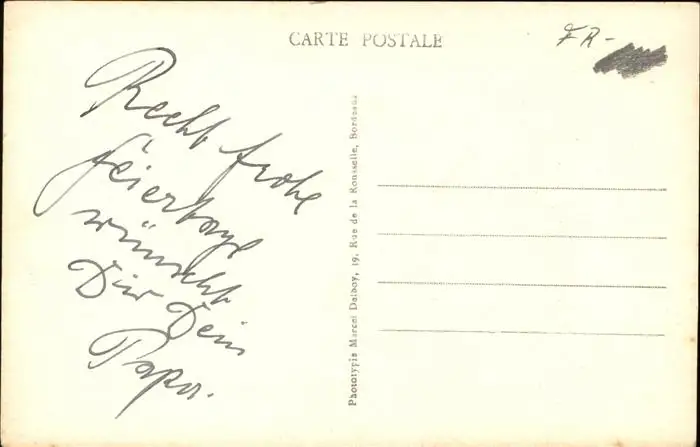 CARTE POSTALE
FR-
Recht frohe
Feiertage
wünscht
Dir Dein
Papa.
Phototypie Marcel Delboy, 19, Rue de la Rousselle, Bordeaux